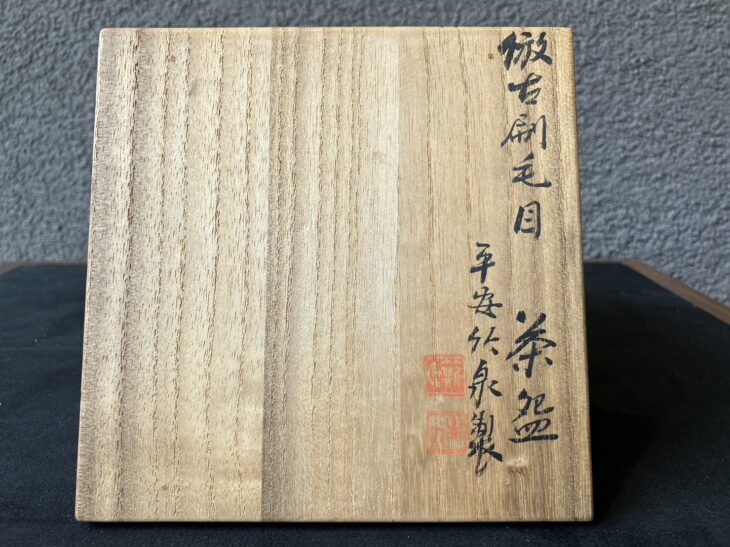 倣古刷毛目 茶盌
平安竹泉製